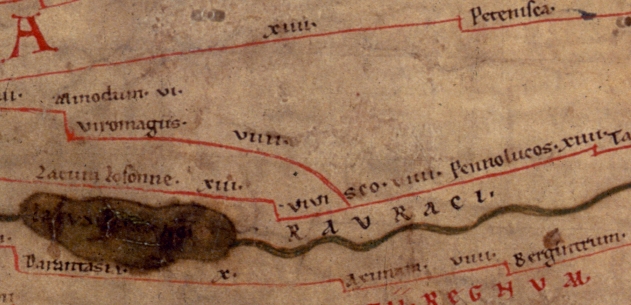 A
xiiii. Petenisca.
Minodum. vi.
viromagus. viiii.
Lacum losonne. xiii.
viviSCO. viiii. Pennolucos. xiiii. Ta
RAVRACI.
Darantasia. x.
Axunam. viiii. Bergintrum.
REGNVM